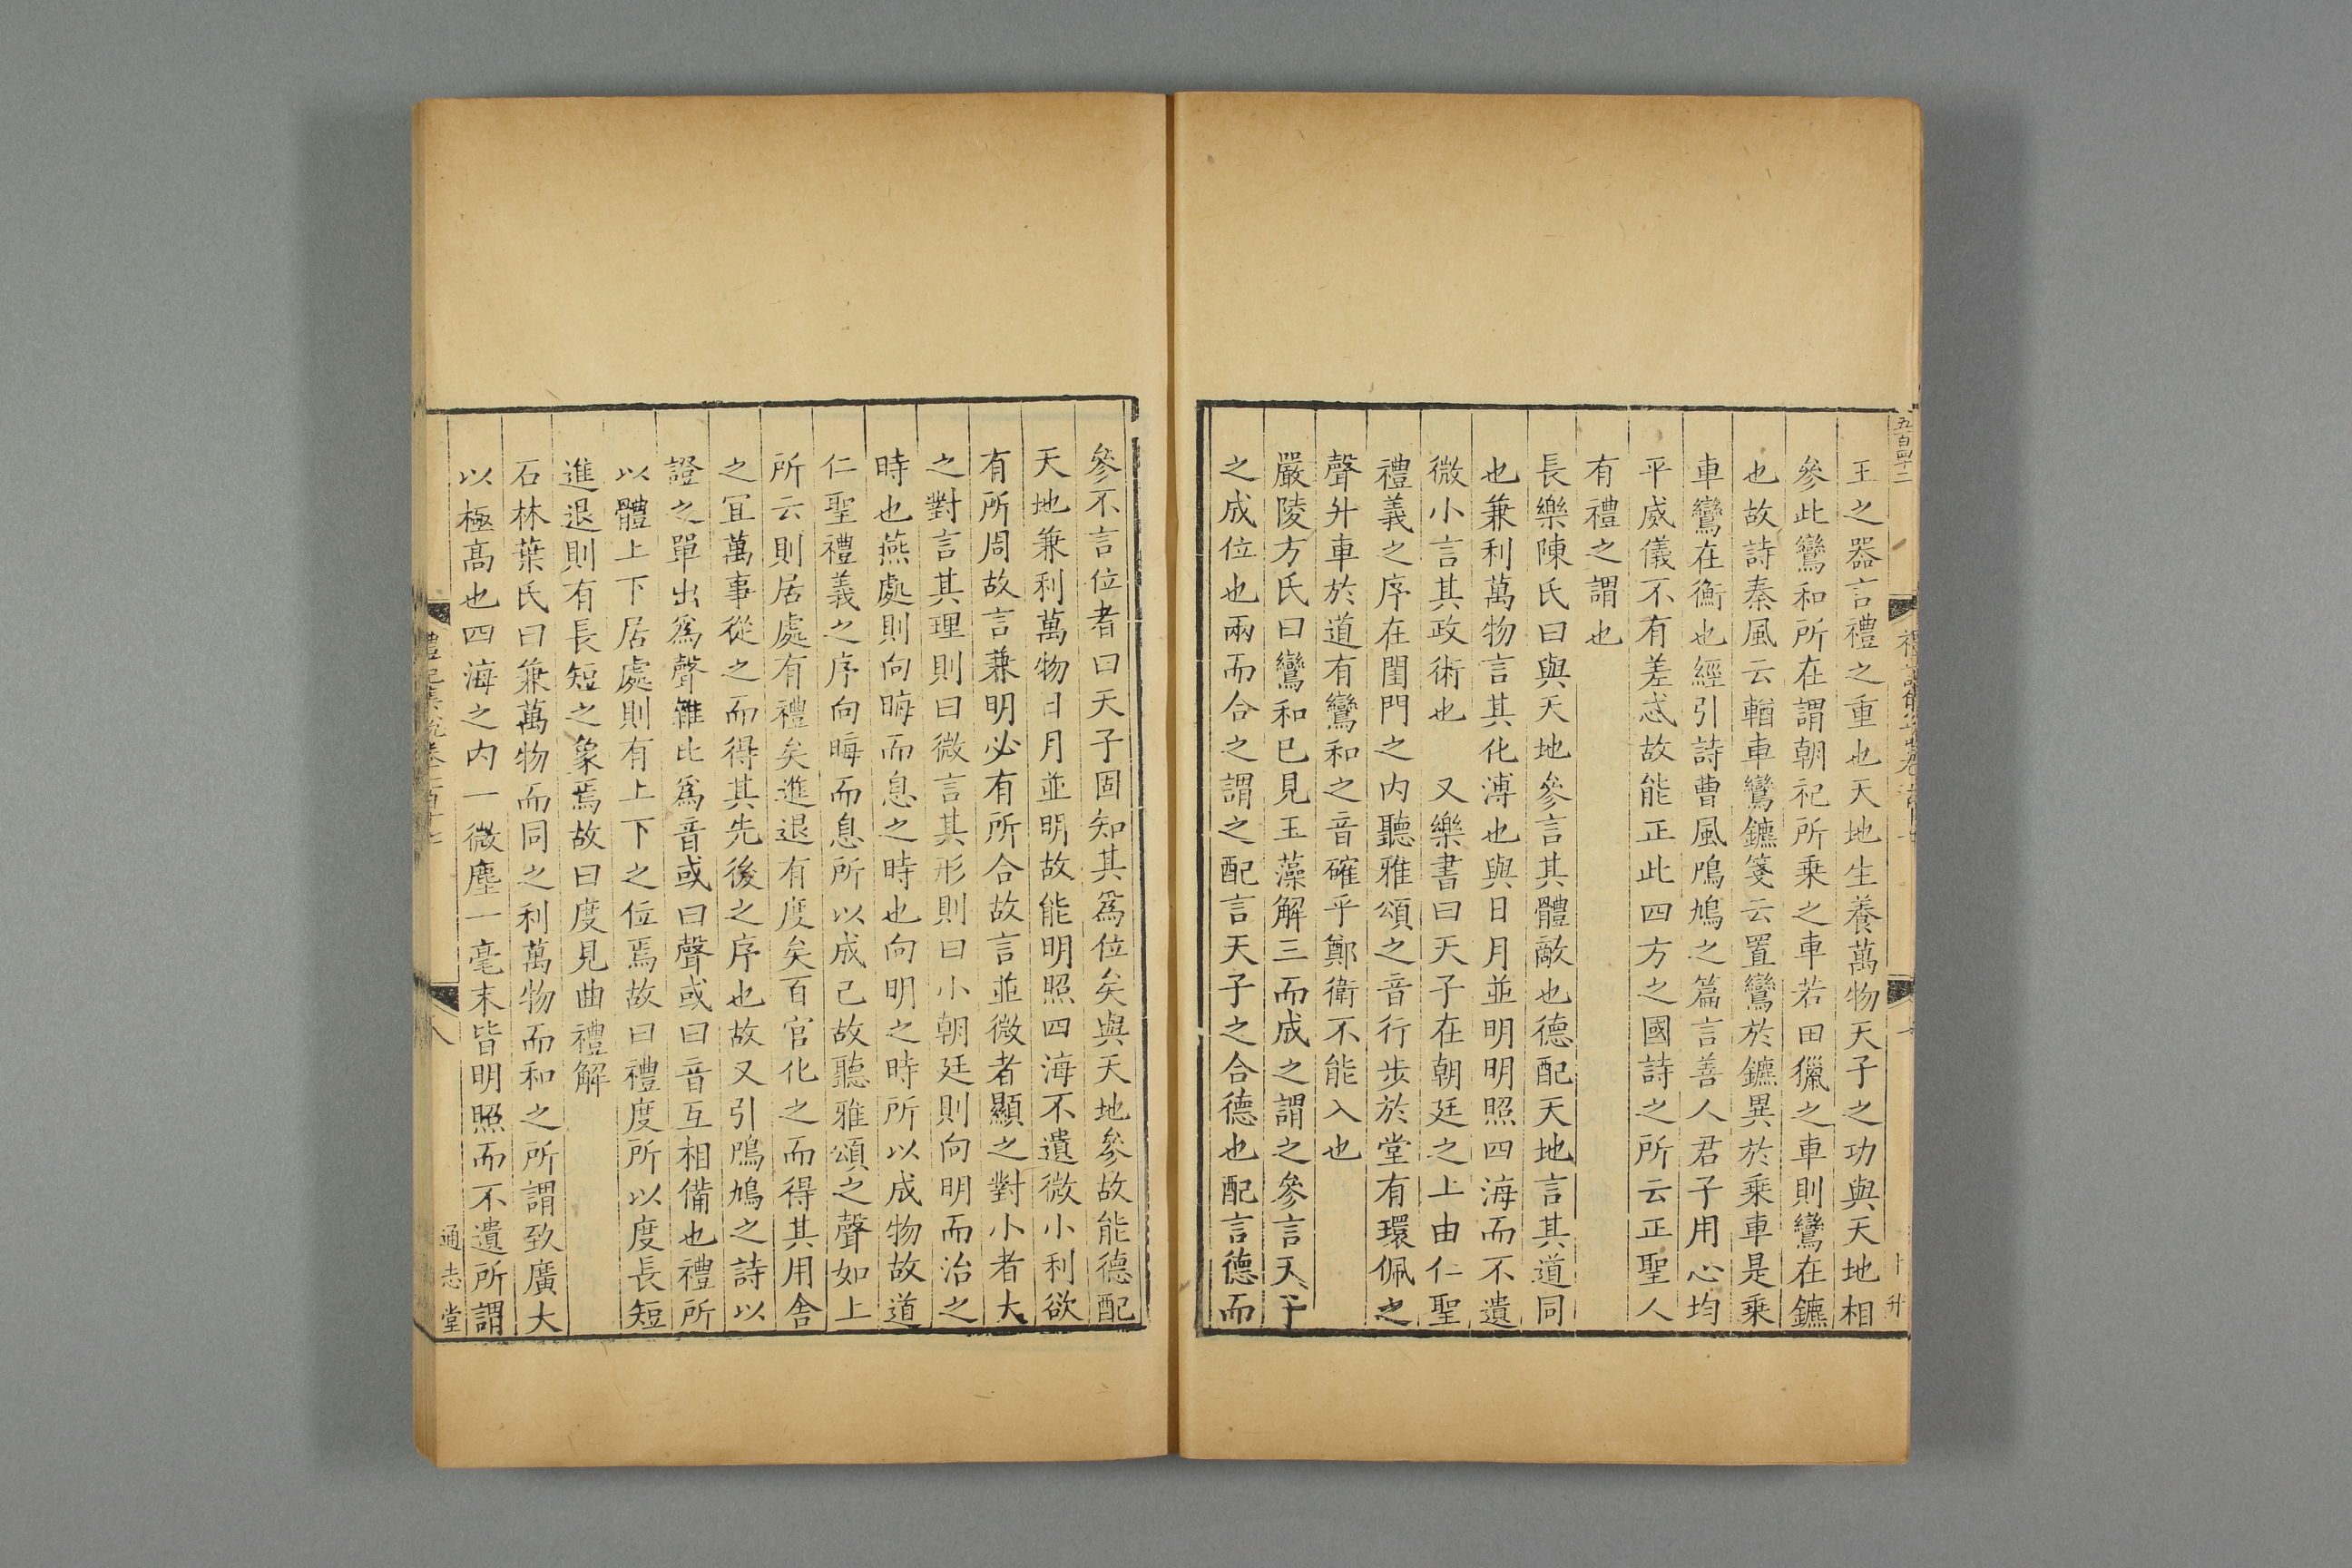 五百四十二
王之器言禮之重也天地生養萬物天子之功與天地相
參此鸞和所在謂朝祀所乗之車若田獵之車則鸞在鑣
也故詩秦風云輶車鸞鑣箋云置鸞於鑣異於乗車是乗
車鸞在衡也經引詩曹風鳲鳩之篇言善人君子用心均
平威儀不有差忒故能正此四方之國詩之所云正聖人
有禮之謂也
長樂陳氏曰與天地參言其體敵也德配天地言其道同
也兼利萬物言其化溥也與日月並明明照四海而不遺
微小言其政術也　又樂書曰天子在朝廷之上由仁聖
禮義之序在閨門之内聽雅頌之音行步於堂有環佩之
聲升車於道有鸞和之音確乎鄭衛不能入也
嚴陵方氏曰鸞和已見玉藻解三而成之謂之參言天子
之成位也兩而合之謂之配言天子之合德也配言德而
參不言位者曰天子固知其爲位矣與天地參故能德配
天地兼利萬物日月並明故能明照四海不遺微小利欲
有所周故言兼明必有所合故言並微者顯之對小者大
之對言其理則曰微言其形則曰小朝廷則向明而治之
時也燕處則向晦而息之時也向明之時所以成物故道
仁聖禮義之序向晦而息所以成己故聽雅頌之聲如上
所云則居處有禮矣進退有度矣百官化之而得其用舍
之宜萬事從之而得其先後之序也故又引鳲鳩之詩以
證之單出爲聲雜比爲音或曰聲或曰音互相備也禮所
以體上下居處則有上下之位焉故曰禮度所以度長短
進退則有長短之象焉故曰度見曲禮解
石林葉氏曰兼萬物而同之利萬物而和之所謂致廣大
以極高也四海之内一微塵一毫末皆明照而不遺所謂
八
通志堂